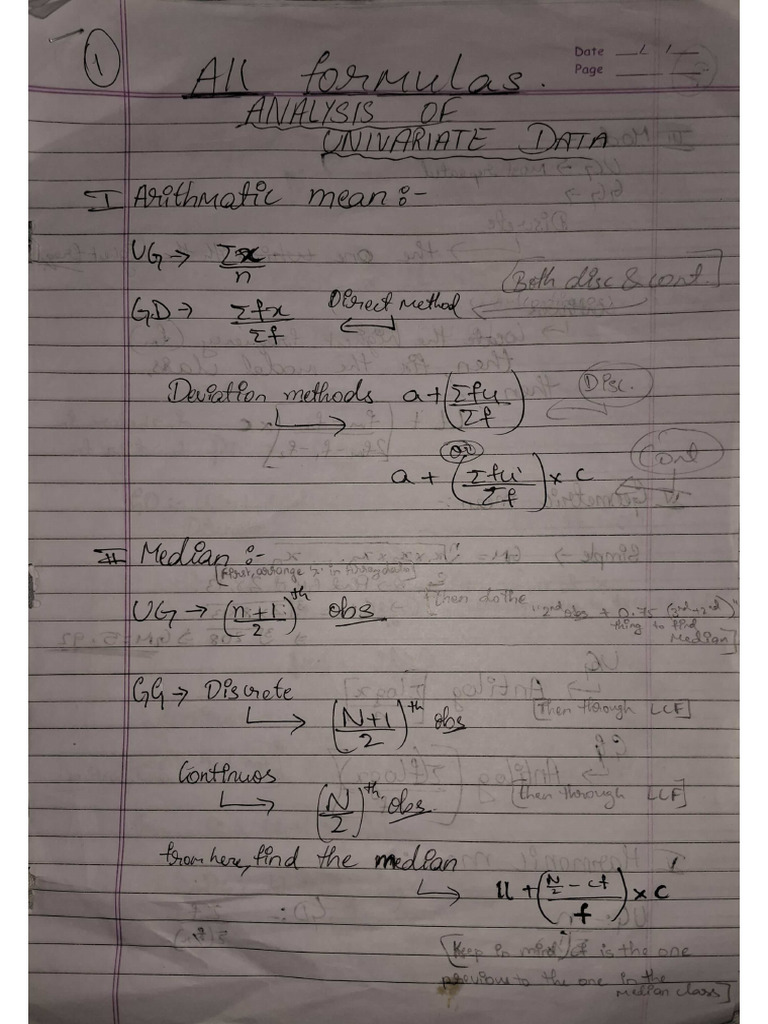 1
Date __/__/__
Page ______
All formulas.
ANALYSIS OF
UNIVARIATE DATA
I Arithmatic mean :-
UG → Σx/n
[Both disc & cont.]
GD → Σfx/Σf Direct method
Deviation methods a + (Σfu/Σf) Disc.
(or)
a + (Σfu'/Σf) × c Cont
II Median :-
[First, arrange 'x' in Array data]
UG → (n+1/2)^th obs [then do the "2nd obs + 0.75 (3rd + 2nd)" thing to find Median]
GG → Discrete
(N+1/2)^th obs [Then through LCF]
Continuos
(N/2)^th obs [then through LCF]
from here, find the median
ll + (N/2 - cf/f) × c
[Keep in mind 'cf' is the one
previous to the one in the
median class]